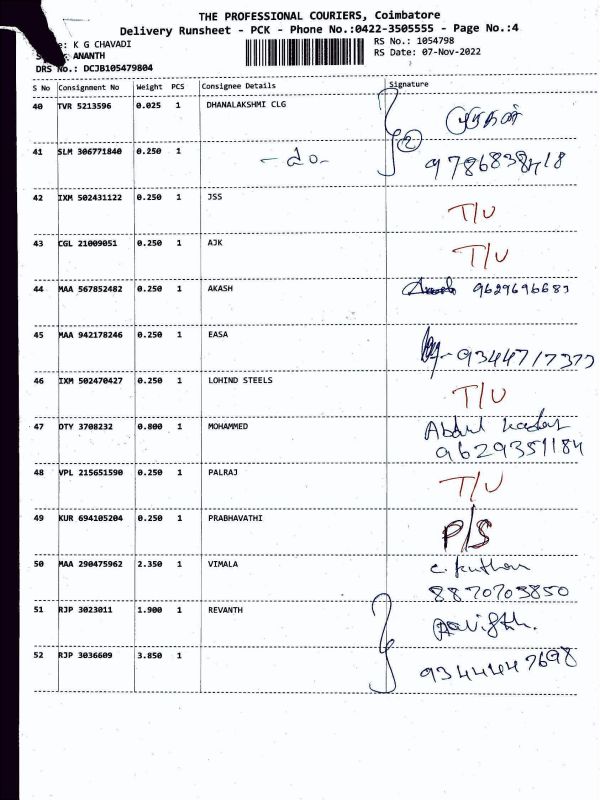 THE PROFESSIONAL COURIERS, Coimbatore
Delivery Runsheet - PCK - Phone No.:0422-3505555 - Page No.:4
: K G CHAVADI
RS No.: 1054798
ANANTH
RS Date: 07-Nov-2022
DRS No.: DCJB105479804
S No Consignment No Weight PCS Consignee Details Signature
40 TVR 5213596 0.025 1 DHANALAKSHMI CLG
2
41 SLM 306771840 0.250 1 - do - 9786838718
42 IXM 502431122 0.250 1 JSS T/U
43 CGL 21009051 0.250 1 AJK T/U
44 MAA 567852482 0.250 1 AKASH 9629696683
45 MAA 942178246 0.250 1 EASA 9344717373
46 IXM 502470427 0.250 1 LOHIND STEELS T/U
47 DTY 3708232 0.800 1 MOHAMMED Abdul kadar
9629351184
48 VPL 215651590 0.250 1 PALRAJ T/U
49 KUR 694105204 0.250 1 PRABHAVATHI P/S
50 MAA 290475962 2.350 1 VIMALA
8870703850
51 RJP 3023011 1.900 1 REVANTH
52 RJP 3036609 3.850 1